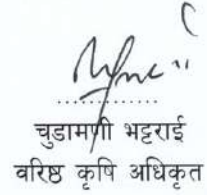 चुडामणी भट्टराई
वरिष्ठ कृषि अधिकृत